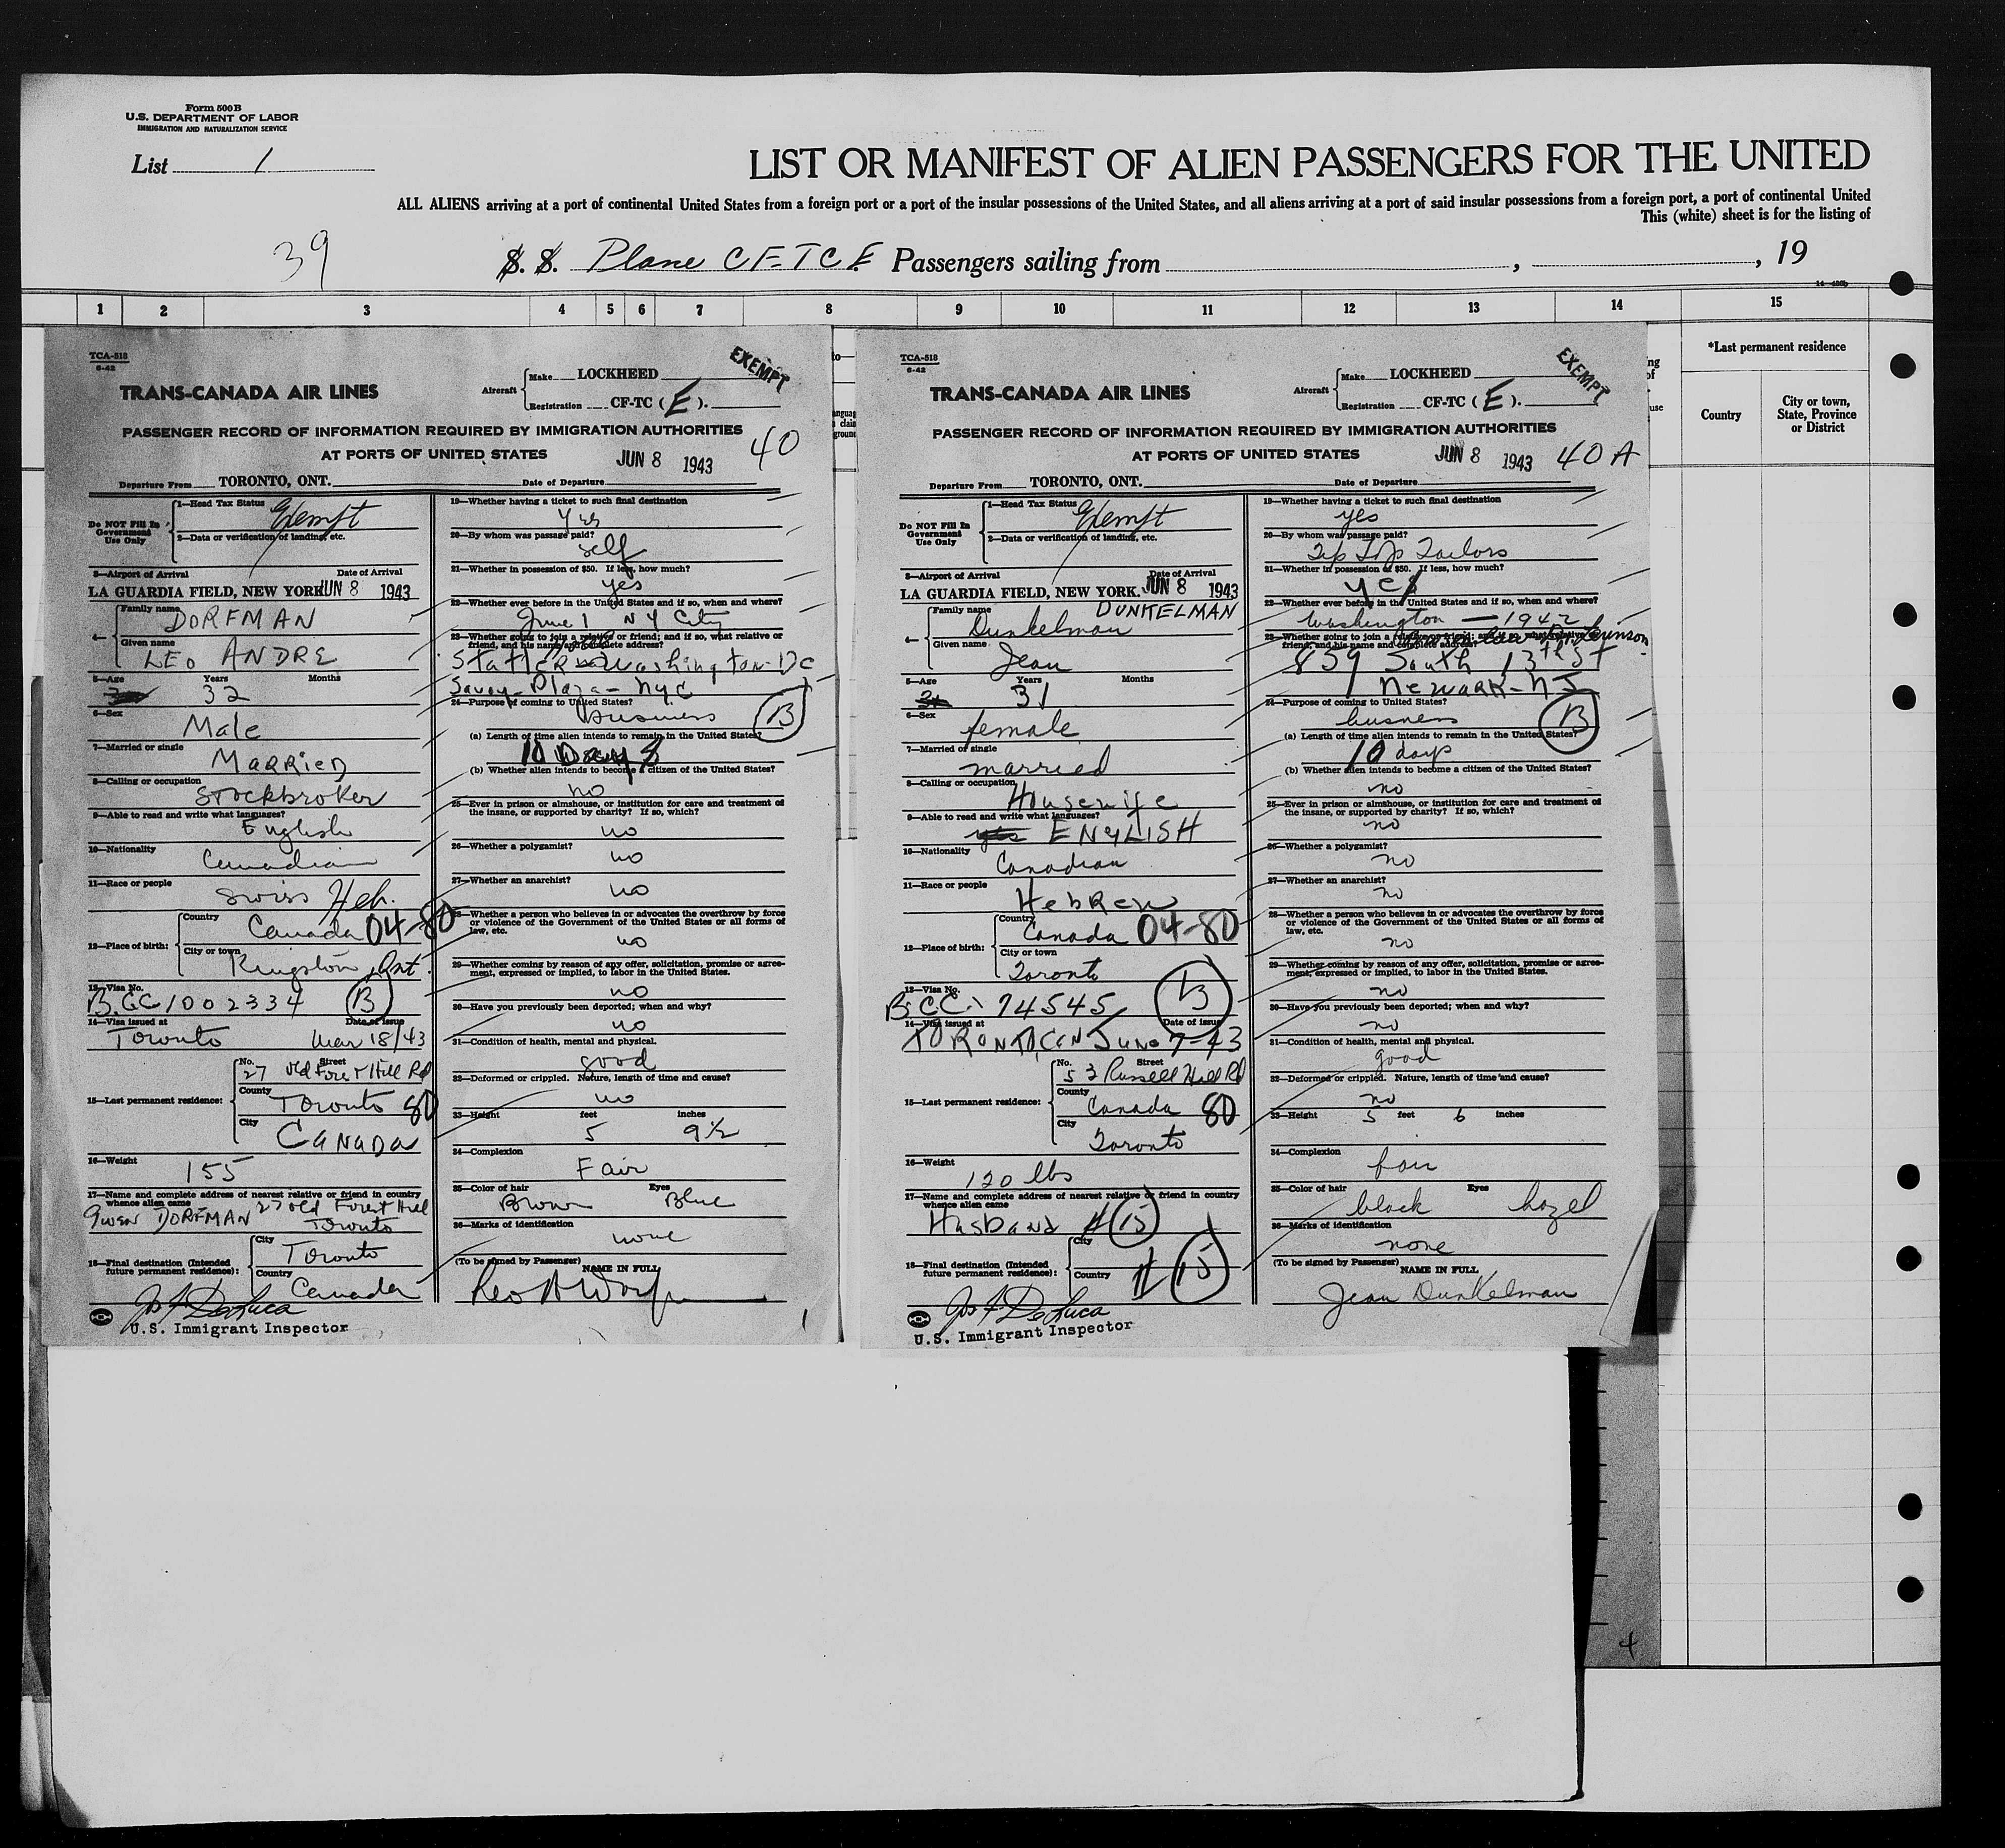 Form 500B
U.S. DEPARTMENT OF LABOR
IMMIGRATION AND NATURALIZATION SERVICE
List 1
LIST OR MANIFEST OF ALIEN PASSENGERS FOR THE UNITED
ALL ALIENS arriving at a port of continental United States from a foreign port or a port of the insular possessions of the United States, and all aliens arriving at a port of said insular possessions from a foreign port, a port of continental United
This (white) sheet is for the listing of
39
S. S. Plane CF-TCE Passengers sailing from , , 19
1 2 3 4 5 6 7 8 9 10 11 12 13 14 15
*Last permanent residence
Country
City or town, State, Province or District
TCA-518
6-42
TRANS-CANADA AIR LINES
Aircraft
Make LOCKHEED
Registration CF-TC ( E ).
EXEMPT
PASSENGER RECORD OF INFORMATION REQUIRED BY IMMIGRATION AUTHORITIES
AT PORTS OF UNITED STATES
JUN 8 1943
40
Departure From TORONTO, ONT. Date of Departure
Do NOT Fill In Government Use Only
1—Head Tax Status Exempt
2—Data or verification of landing, etc.
3—Airport of Arrival Date of Arrival
LA GUARDIA FIELD, NEW YORK JUN 8 1943
4—
Family name DORFMAN
Given name LEO ANDRE
5—Age Years Months
32
6—Sex
Male
7—Married or single
MARRIED
8—Calling or occupation
Stockbroker
9—Able to read and write what languages?
English
10—Nationality
Canadian
11—Race or people
Swiss Heb.
12—Place of birth:
Country
Canada 04-80
City or town
Kingston, Ont.
13—Visa No.
B.CC 1002334 B
14—Visa issued at Date of issue
Toronto Mar 18/43
15—Last permanent residence:
No. Street
27 Old Forest Hill Rd
County
Toronto 80
City
CANADA
16—Weight
155
17—Name and complete address of nearest relative or friend in country whence alien came
Gwen DORFMAN 27 Old Forest Hill
Toronto
18—Final destination (Intended future permanent residence):
City
Toronto
Country
Canada
Jos F De Luca
U.S. Immigrant Inspector
19—Whether having a ticket to such final destination
Yes
20—By whom was passage paid?
self
21—Whether in possession of $50. If less, how much?
yes
22—Whether ever before in the United States and if so, when and where?
June 1 NY City
23—Whether going to join a relative or friend; and if so, what relative or friend, and his name and complete address?
Statler Washington-DC
Savoy-Plaza-NYC
24—Purpose of coming to United States?
business B
(a) Length of time alien intends to remain in the United States?
10 Days
(b) Whether alien intends to become a citizen of the United States?
no
25—Ever in prison or almshouse, or institution for care and treatment of the insane, or supported by charity? If so, which?
no
26—Whether a polygamist?
no
27—Whether an anarchist?
no
28—Whether a person who believes in or advocates the overthrow by force or violence of the Government of the United States or all forms of law, etc.
no
29—Whether coming by reason of any offer, solicitation, promise or agreement, expressed or implied, to labor in the United States.
no
30—Have you previously been deported; when and why?
no
31—Condition of health, mental and physical.
good
32—Deformed or crippled. Nature, length of time and cause?
no
33—Height feet inches
5 9½
34—Complexion
Fair
35—Color of hair Eyes
Brown Blue
36—Marks of identification
none
(To be signed by Passenger) NAME IN FULL
TCA-518
6-42
TRANS-CANADA AIR LINES
Aircraft
Make LOCKHEED
Registration CF-TC ( E ).
EXEMPT
PASSENGER RECORD OF INFORMATION REQUIRED BY IMMIGRATION AUTHORITIES
AT PORTS OF UNITED STATES
JUN 8 1943
40A
Departure From TORONTO, ONT. Date of Departure
Do NOT Fill In Government Use Only
1—Head Tax Status Exempt
2—Data or verification of landing, etc.
3—Airport of Arrival Date of Arrival
LA GUARDIA FIELD, NEW YORK. JUN 8 1943
4—
Family name DUNKELMAN
Dunkelman
Given name Jean
5—Age Years Months
31
6—Sex
female
7—Married or single
married
8—Calling or occupation
Housewife
9—Able to read and write what languages?
yes ENGLISH
10—Nationality
Canadian
11—Race or people
Hebrew
12—Place of birth:
Country
Canada 04-80
City or town
Toronto
13—Visa No.
B.CC- 74545 B
14—Visa issued at Date of issue
TORONTO, CAN June 7-43
15—Last permanent residence:
No. Street
53 Russell Hill Rd
County
Canada 80
City
Toronto
16—Weight
120 lbs
17—Name and complete address of nearest relative or friend in country whence alien came
Husband # 15
18—Final destination (Intended future permanent residence):
City
Country
# 15
Jos F De Luca
U.S. Immigrant Inspector
19—Whether having a ticket to such final destination
yes
20—By whom was passage paid?
Tip Top Tailors
21—Whether in possession of $50. If less, how much?
yes
22—Whether ever before in the United States and if so, when and where?
Washington — 1942
23—Whether going to join a relative or friend; and if so, what relative or friend, and his name and complete address?
859 South 13th ST
Newark-NJ
24—Purpose of coming to United States?
business B
(a) Length of time alien intends to remain in the United States?
10 days
(b) Whether alien intends to become a citizen of the United States?
no
25—Ever in prison or almshouse, or institution for care and treatment of the insane, or supported by charity? If so, which?
no
26—Whether a polygamist?
no
27—Whether an anarchist?
no
28—Whether a person who believes in or advocates the overthrow by force or violence of the Government of the United States or all forms of law, etc.
no
29—Whether coming by reason of any offer, solicitation, promise or agreement, expressed or implied, to labor in the United States.
no
30—Have you previously been deported; when and why?
no
31—Condition of health, mental and physical.
good
32—Deformed or crippled. Nature, length of time and cause?
no
33—Height 5 feet 6 inches
34—Complexion
fair
35—Color of hair Eyes
black hazel
36—Marks of identification
none
(To be signed by Passenger) NAME IN FULL
Jean Dunkelman
4